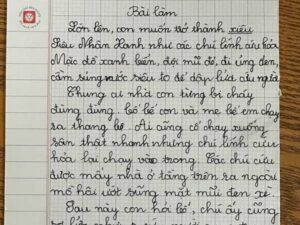 Bài làm
Lớn lên, con muốn trở thành siêu
Siêu Nhân Xanh như các chú lính cứu hỏa
Mặc đồ xanh biển, đội mũ đỏ, đi ủng đen,
cầm súng nước siêu to để dập lửa cứu người
Chung cư nhà con từng bị cháy
đùng đùng bố bế con và mẹ bế em chạy
ra thang bộ. Ai cũng cố chạy xuống
sân thật nhanh nhưng chú lính cứu
hỏa lại chạy vào trong. Các chú cứu
được mấy nhà ở tầng trên ra ngoài
mồ hôi ướt sũng mặt mũi đen xì.
Sau này con hỏi bố, chú ấy cũng